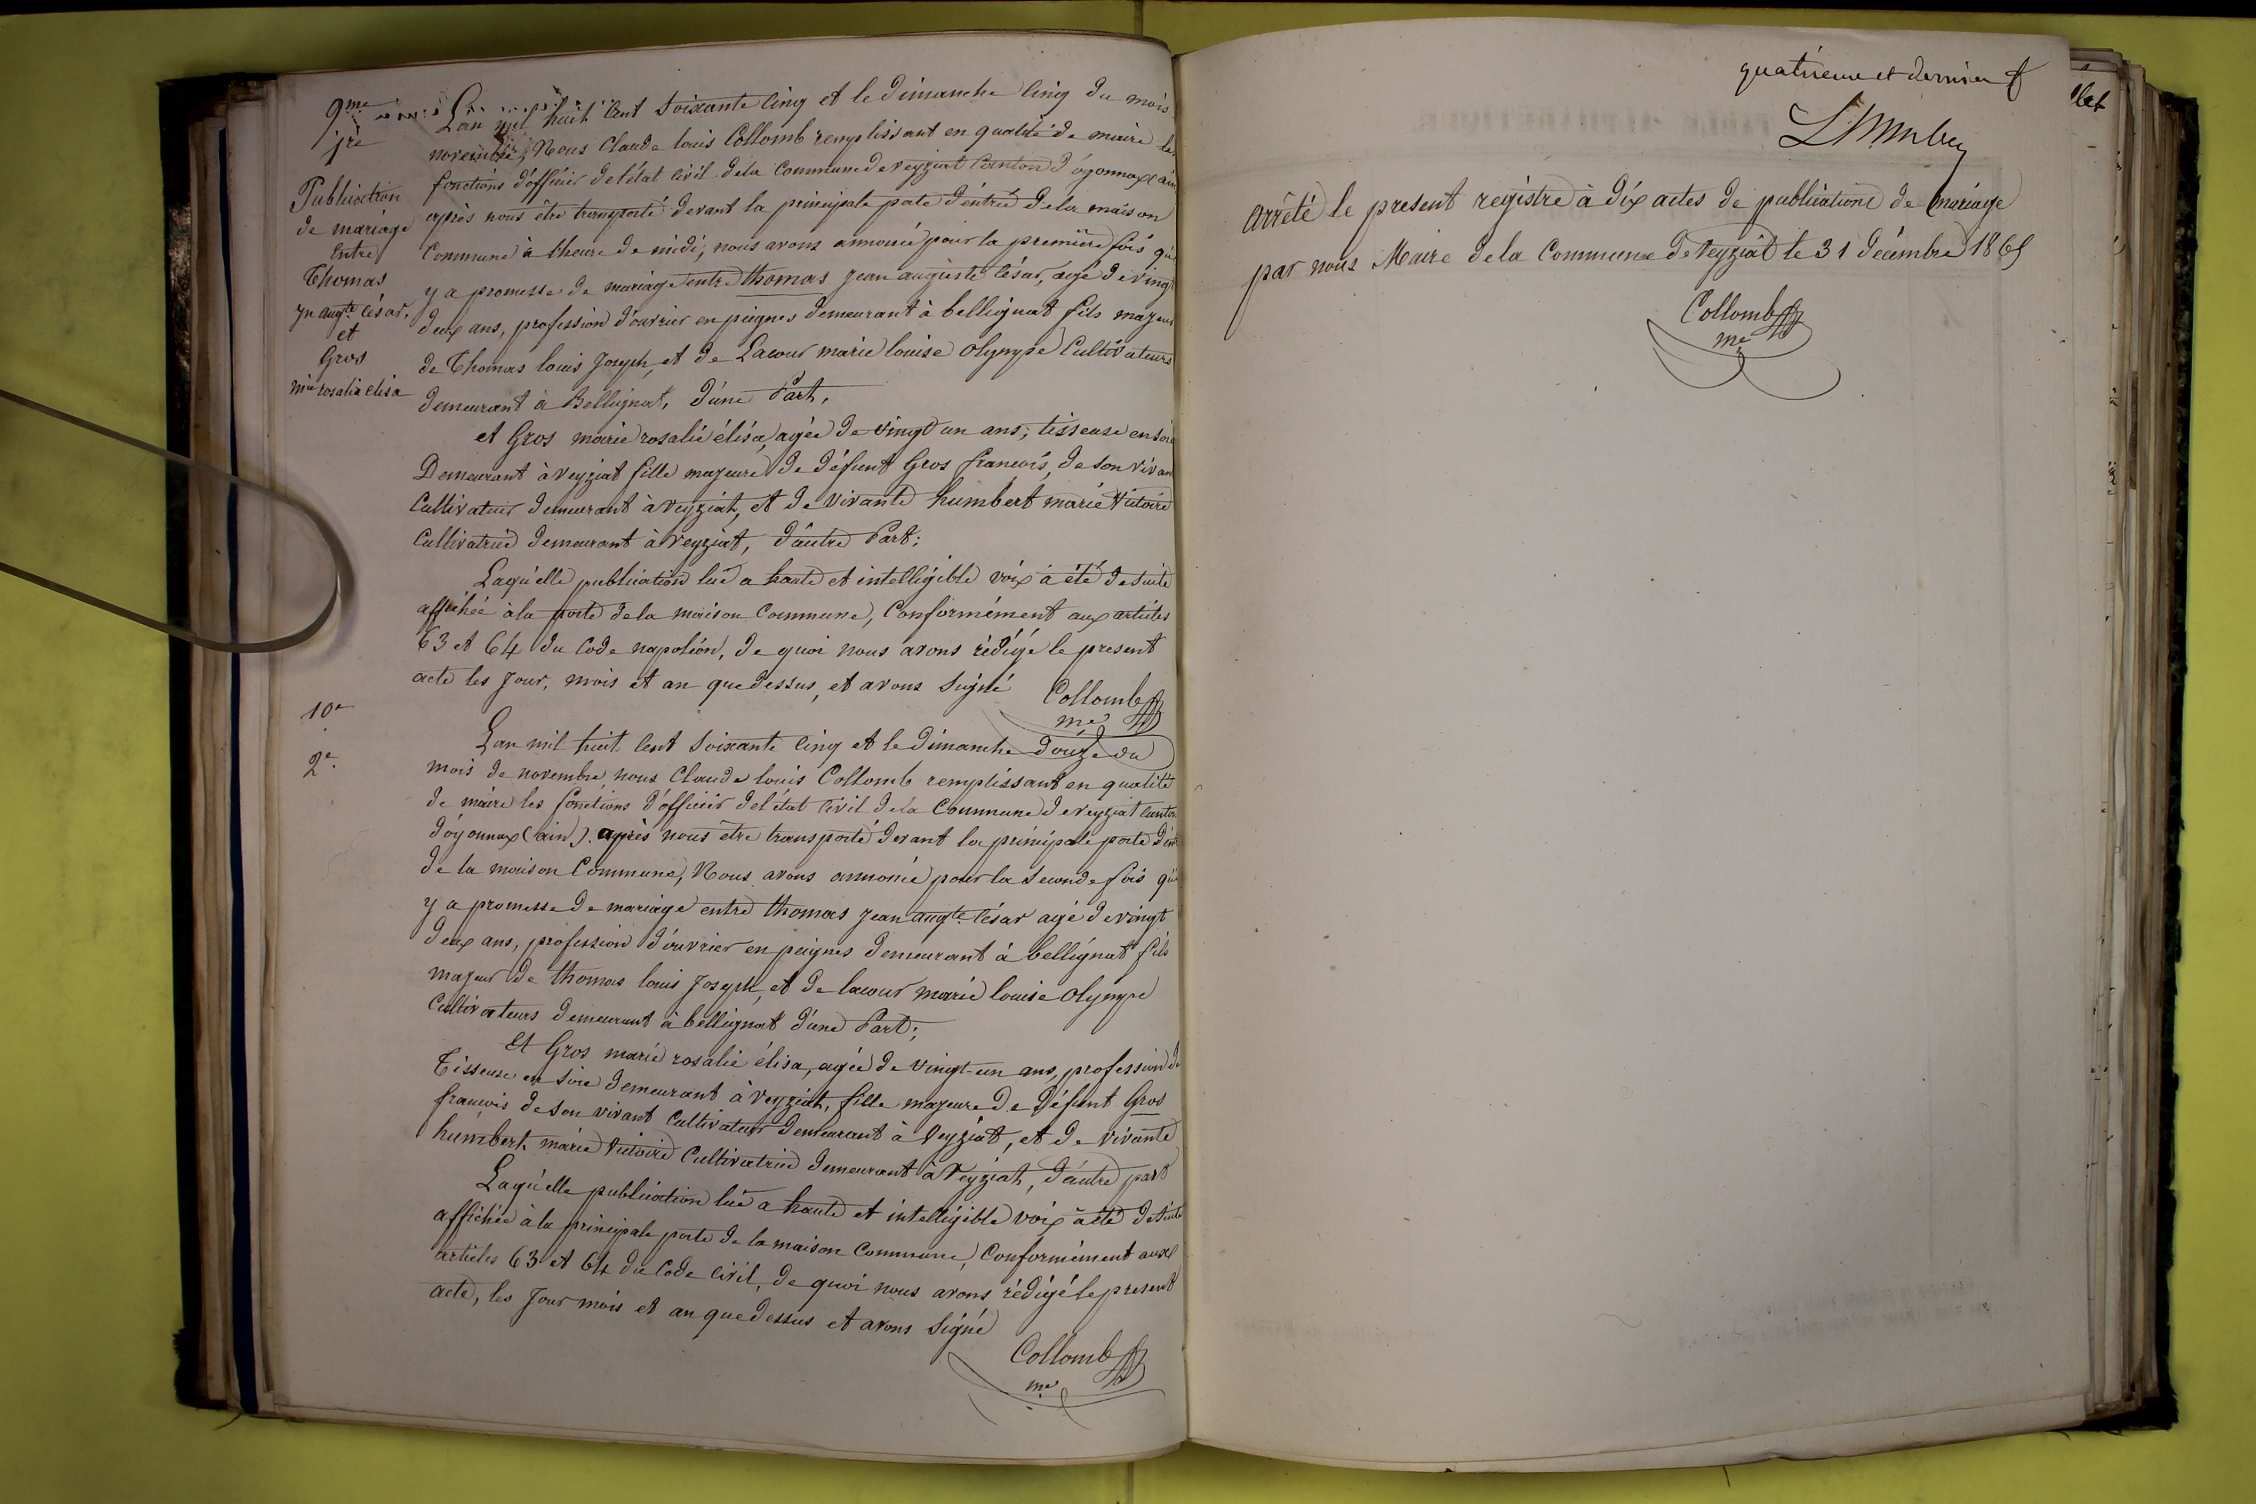 9me
1re
Publication
de mariage
entre
Thomas
jn augte césar,
et
Gros
mie rosalie élisa
L'an mil huit cent soixante cinq et le dimanche cinq du mois
novembre, Nous Claude louis Collomb remplissant en qualité de maire les
fonctions d'officier de l'état civil de la Commune de veyziat Canton d'oyonnax ain
après nous être transporté devant la principale porte d'entrée de la maison
Commune à l'heure de midi, nous avons annoncé pour la première fois qu'il
y a promesse de mariage entre thomas jean auguste César, agé de vingt
deux ans, profession d'ouvrier en peignes demeurant à bellignat fils majeur
de Thomas louis Joseph, et de Lacour marie louise Olympe Cultivateurs
demeurant à Bellignat, d'une Part,
et Gros marie rosalie élisa, agée de vingt un ans, tisseuse en soie
Demeurant à veyziat fille majeure de défunt Gros francois, de son vivant
Cultivateur demeurant à veyziat, et de vivante humbert marie Victoire
Cultivatrice demeurant à veyziat, d'autre Part;
Laqu'elle publication lue a haute et intelligible voix à été de suite
affichée à la porte de la maison Commune, Conformément aux articles
63 et 64 du Code napoléon, de quoi nous avons rédigé le present
acte les Jour, mois et an que dessus, et avons signé
Collomb
me
10e
2e
L'an mil huit cent soixante cinq et le dimanche douze du
mois de novembre nous Claude louis Collomb remplissant en qualité
de maire les fonctions d'officier de l'état civil de la Commune de veyziat Canton
d'oyonnax (ain). après nous être transporté devant la principale porte d'entrée
de la maison Commune, Nous avons annoncé pour la seconde fois qu'il
y a promesse de mariage entre thomas jean augte César agé de vingt
deux ans, profession d'ouvrier en peignes demeurant à bellignat fils
majeur de thomas louis Joseph, et de lacour marie louise olympe
Cultivateurs demeurant à bellignat d'une Part;
Et Gros marie rosalie élisa, agée de vingt-un ans, profession de
Tisseuse en soie demeurant à Veyziat, fille majeure de Défunt Gros
francois de son vivant Cultivateur demeurant à Veyziat, et de vivante
humbert marie Victoire Cultivatrice demeurant à Veyziat, d'autre part
Laqu'elle publication lue a haute et intelligible voix à été de suite
affichée à la principale porte de la maison Commune, Conformément aux
articles 63 et 64 du Code Civil, de quoi nous avons rédigé le present
acte, les Jour mois et an que dessus et avons signé
Collomb
me
quatrieme et dernier f
arrêté le present registre à dix actes de publications de mariage
par nous Maire de la Commune de Veyziat le 31 décembre 1865
Collomb
me